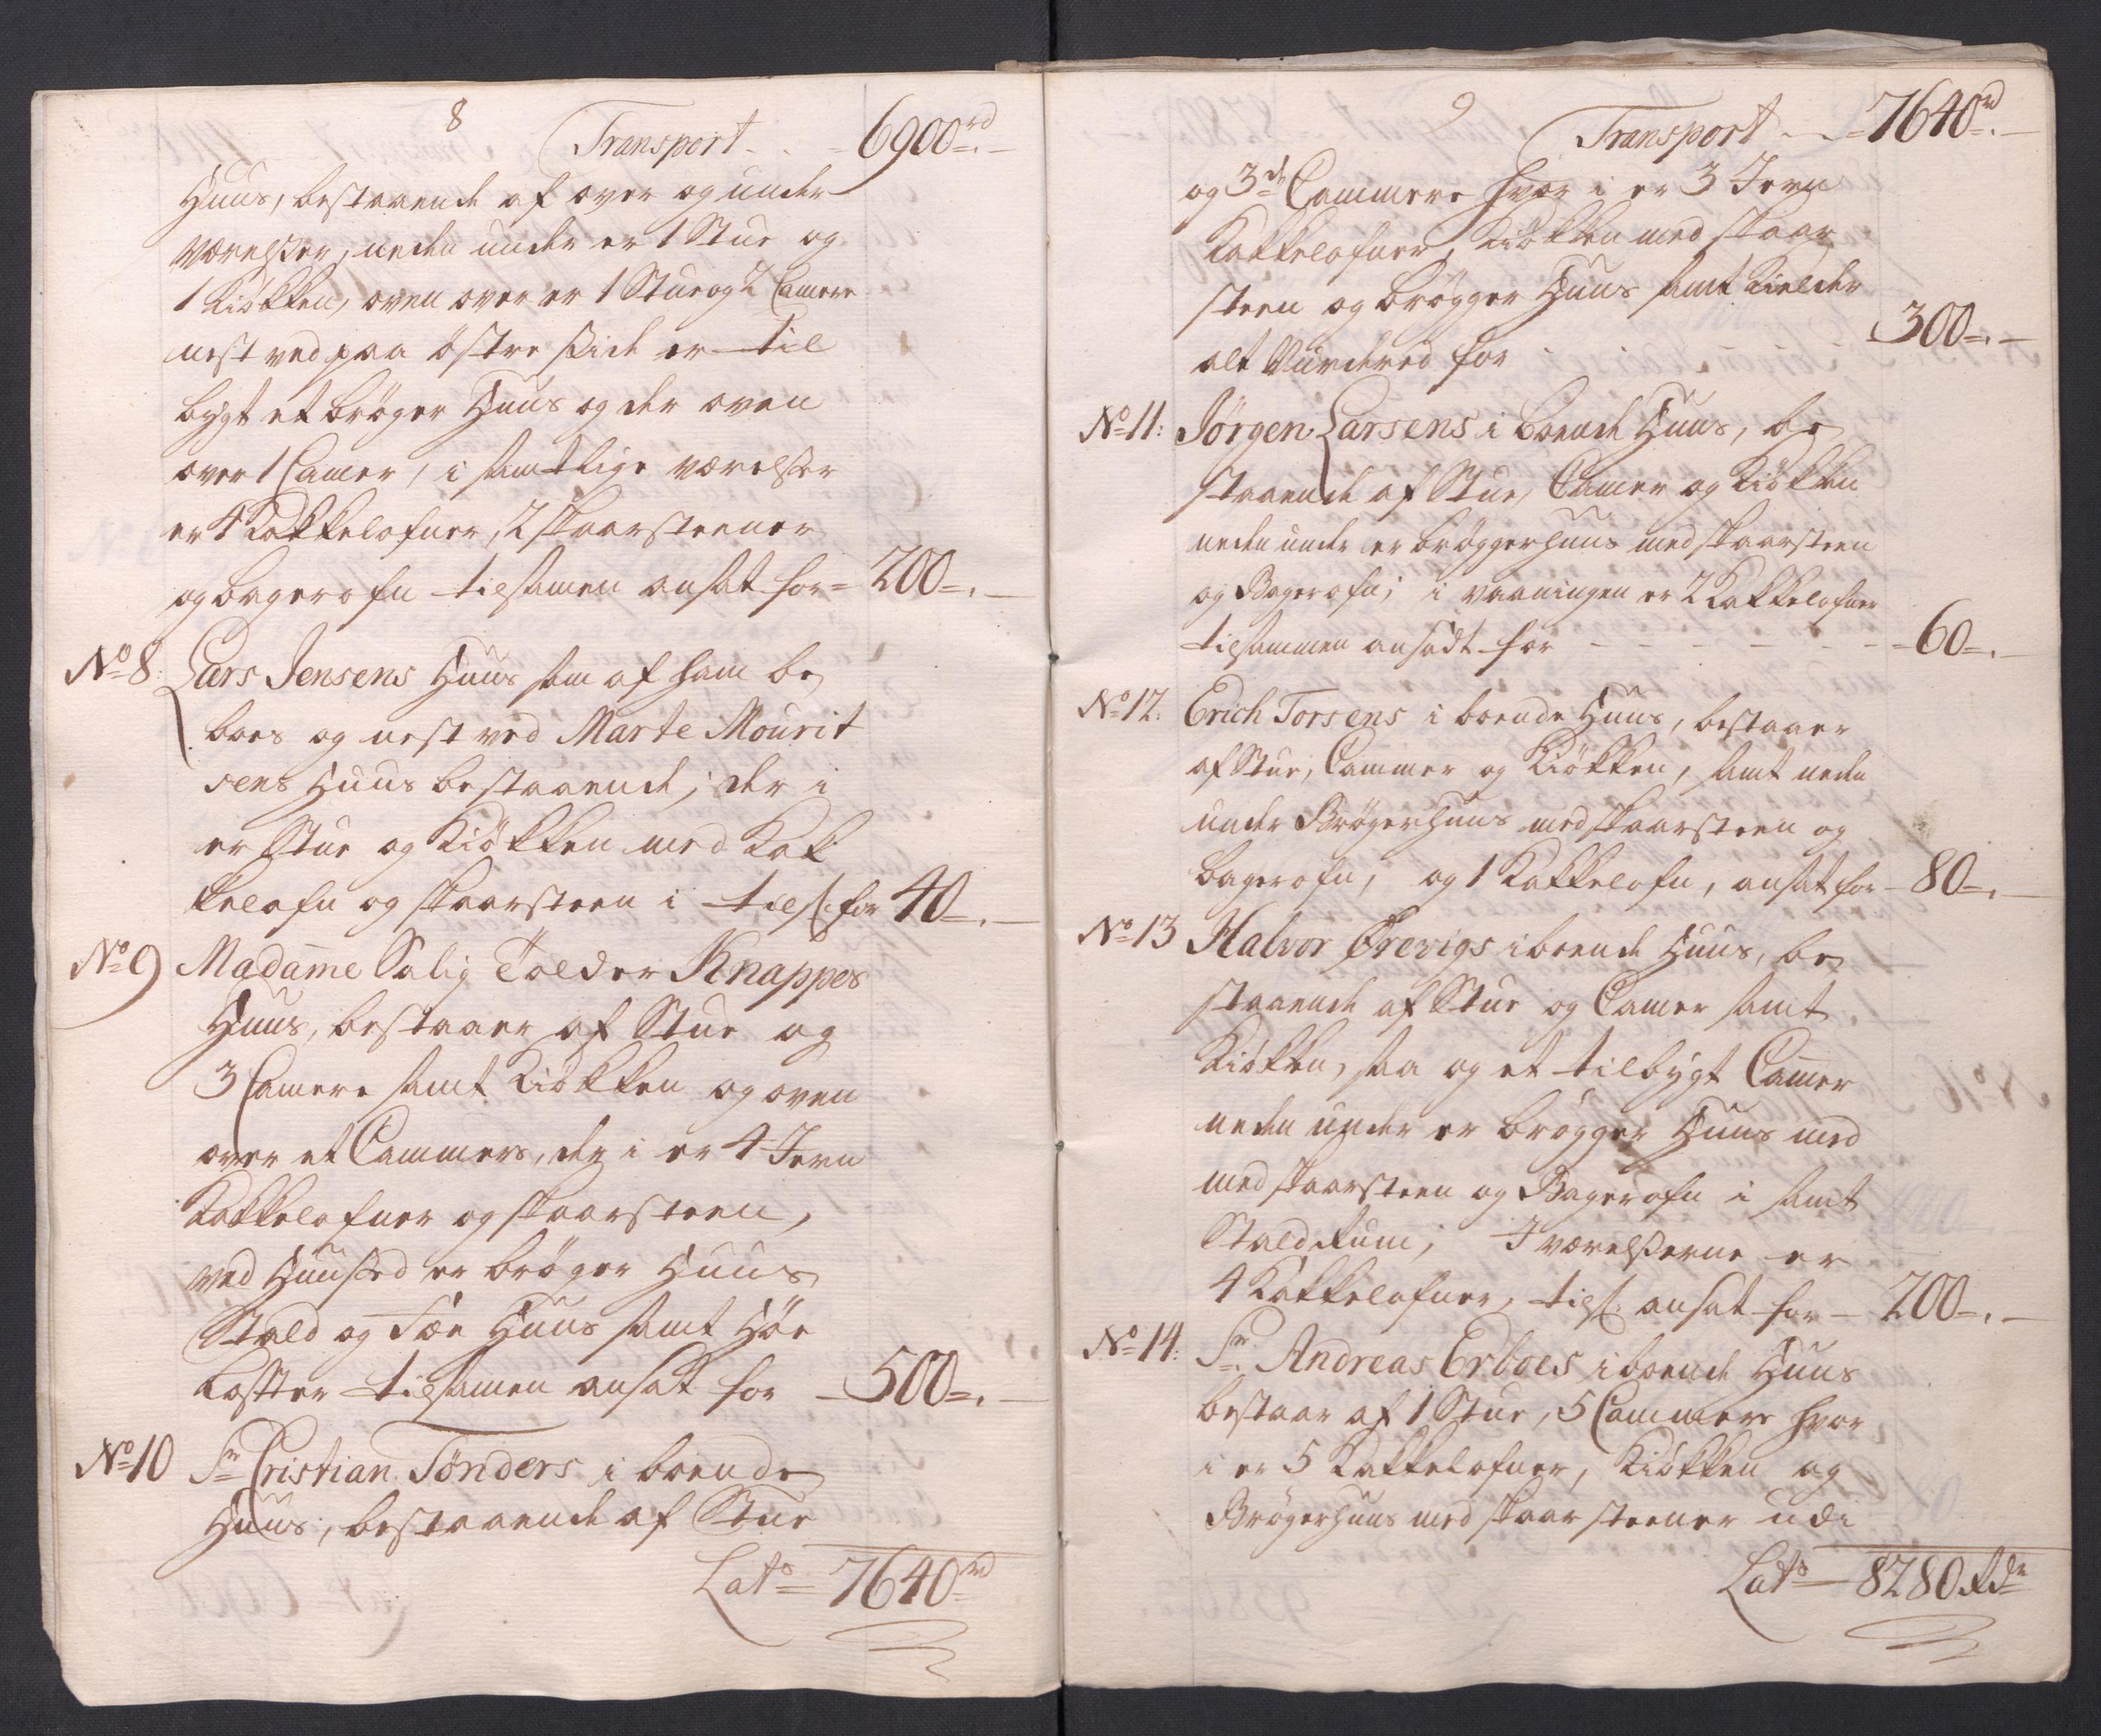 8
Transport - - - 6900rd=.-
Huus, bestaaende af over og under
værelser, neden under er 1 Stue og
1 Kiökken, oven over er 1 Stue og 2 Camere
nest ved paa östre side er til
bygt et bröger Huus og der oven
over 1 Camer, i samtlige værelser
er 4 Kakkelofner, 2 skaarsteener
og bagerofn tilsamen ansat for = 200=.-
No 8: Lars Jensens Huus som af ham be
boes og nest ved Marte Mourit
sens Huus bestaaende; der i
er Stue og Kiökken med Kak
kelofn og skaarsteen i tils: for 40=.-
No 9 Madame Salig Tolder Knappes
Huus, bestaaer af Stue og
3 Camere samt Kiökken og oven
over et Cammers, der i er 4 Jern
Kakkelofner og skaarsteen,
ved Huuset er bröger Huus
Stald og Fæe Huus samt Höe
Lofter tilsamen ansat for - 500=.-
No 10 Sr Cristian Tönders i boende
Huus, bestaaende af Stue
Lats = 7640rd
9
Transport - - = 7640rd=.-
og 3de Cammere hvor i er 3 Jern
Kakkelofner, Kiökken med skaar
steen og brögger Huus samt Kielder
alt Vurdered for - - - 300=.-
No 11: Jörgen Larsens i boende Huus, be
staaende af Stue, Camer og Kiökken
neden under er bröggerhuus med skaarsteen
og Bagerofn; i vaaningen er 2 Kakkelofner
tilsammen ansadt for - - - - - - = 60=.-
No 12: Erich Torsens i boende Huus, bestaaer
af Stue, Cammer og Kiökken, samt neden
under Brögerhuus med skaarsteen og
bagerofn, og 1 Kakkelofn, ansat for - 80=.-
No 13 Halvor Örevigs iboende Huus, be
staaende af Stue og Camer samt
Kiökken, saa og et tilbygt Camer
neden under er brögger Huus med
med skaarsteen og Bagerofn i samt
Stald Rum; I værelserne er
4 Kakkelofner, tils: ansat for - 200=.-
No 14: Sr. Andreas Erboes iboende Huus
bestaar af 1 Stue, 5 Cammere hvor
i er 5 Kakkelofner, Kiökken og
Brögerhuus med skaarsteener udi
Lats - 8280 Rdr